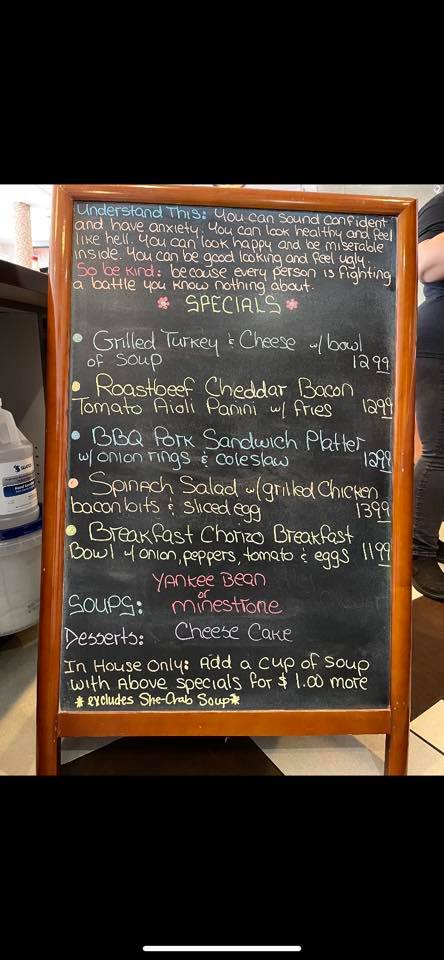 Understand This: You can sound confident
and have anxiety. You can look healthy and feel
like hell. You can look happy and be miserable
inside. You can be good looking and feel ugly.
So be kind: because every person is fighting
a battle you know nothing about.
* SPECIALS *
• Grilled Turkey & Cheese w/ bowl
of soup 12.99
• Roastbeef Cheddar Bacon
Tomato Aioli Panini w/ fries 12.99
• BBQ Pork Sandwich Platter
w/ onion rings & coleslaw 12.99
• Spinach Salad w/ grilled Chicken
bacon bits & sliced egg 13.99
• Breakfast Chorizo Breakfast
Bowl w/ onion, peppers, tomato & eggs 11.99
Yankee Bean
or
Soups: Minestrone
Desserts: Cheese Cake
In House Only: Add a cup of soup
with Above specials for $ 1.00 more
* excludes She-Crab Soup *